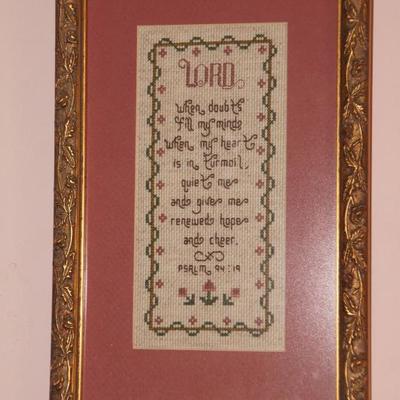 LORD,
when doubts
fill my mind
when my heart
is in turmoil,
quiet me
and give me
renewed hope
and cheer.
PSALM 94:19